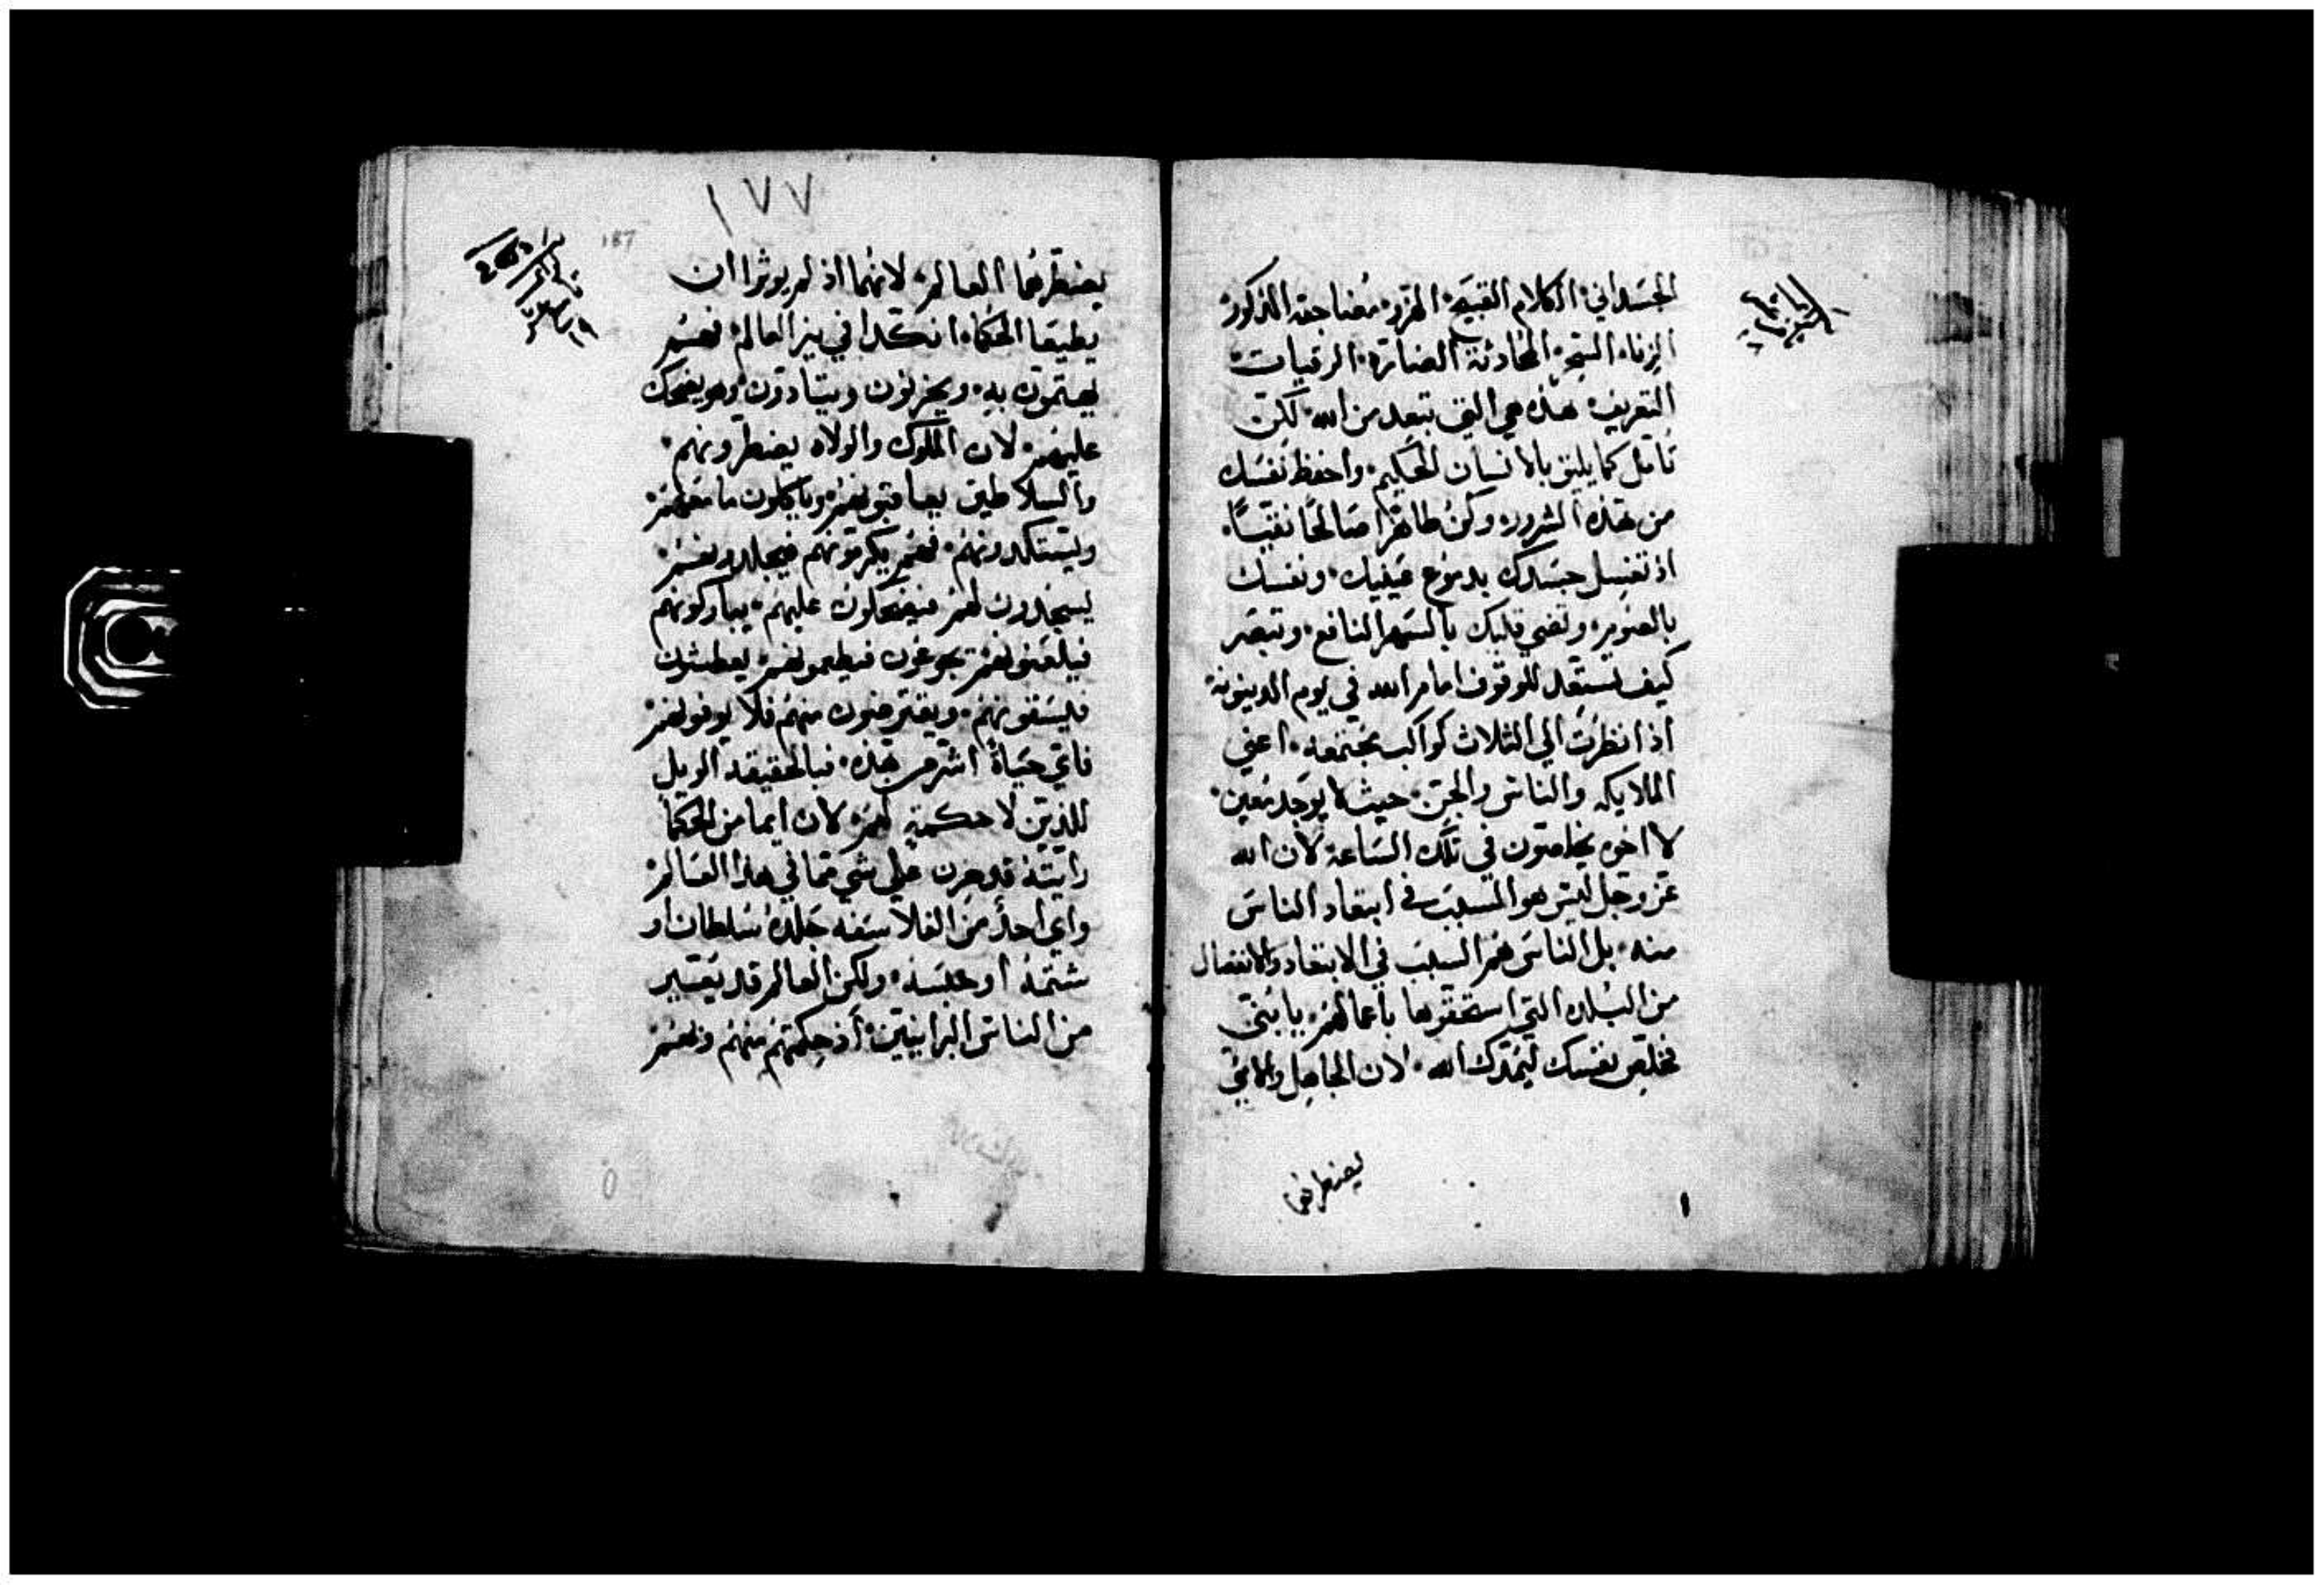 الجسداني، الكلام القبيح، الهزو، مضاجعة الذكور
الزناء، السحر، المحادثة الضارة، الرقيات
التعريف، هذه هي التي تبعد من الله، لكن
تامل كما يليق بالانسان الحكيم، واحفظ نفسك
من هذه الشرور، وكن طاهرا صالحا نقيا،
اذ تغسل جسدك بدموع عينيك، ونفسك
بالصوم، وتضي قلبك بالسهر النافع، وتبصر
كيف تستعد للوقوف امام الله في يوم الدينونة،
اذا نظرت الي الثلاث كواكب مجتمعه، اعني
الملايكه والناس والجن، حيث لا يوجد معين،
لا اخوه يخلصون في تلك الساعة، لان الله
عز وجل ليس هو المسبب في ابتعاد الناس
منه، بل الناس هم السبب في الابتعاد والانفصال
من البلده التي استحقوها باعمالهم، يا بني
خلص نفسك ليمدك الله، لان الجاهل والامي
يضطرهما
١٧٧
187
يضطرهما العالم، لانهما اذ لم يوثرا ان
يطيعا الحكما، انكدا في نير العالم، فهم
يهتمون به، ويحزنون ويتادون، وهو يضحك
عليهم، لان الملوك والولاه يضطرونهم،
والسلاطين يعاقبونهم، وياكلون ما معهم،
ويستكدونهم، فهم يكرمونهم فيجلدونهم،
يسجدون لهم فيضحكون عليهم، يباركونهم
فيلعنونهم، يجوعون فيطعمونهم، يعطشون
فليسقونهم، ويقترضون منهم فلا يوفونهم،
فاي حياة اشر من هذه، فبالحقيقه الويل
للذين لا حكمة لهم، لان ايما من الحكما
رايته قد حزن علي شي مما في هذا العالم،
واي احد من الفلاسفه جلده سلطان او
شتمه او حبسه، ولكن العالم قد يعتبر
من الناس البرانيين، اذ حكمتهم منهم ولهم